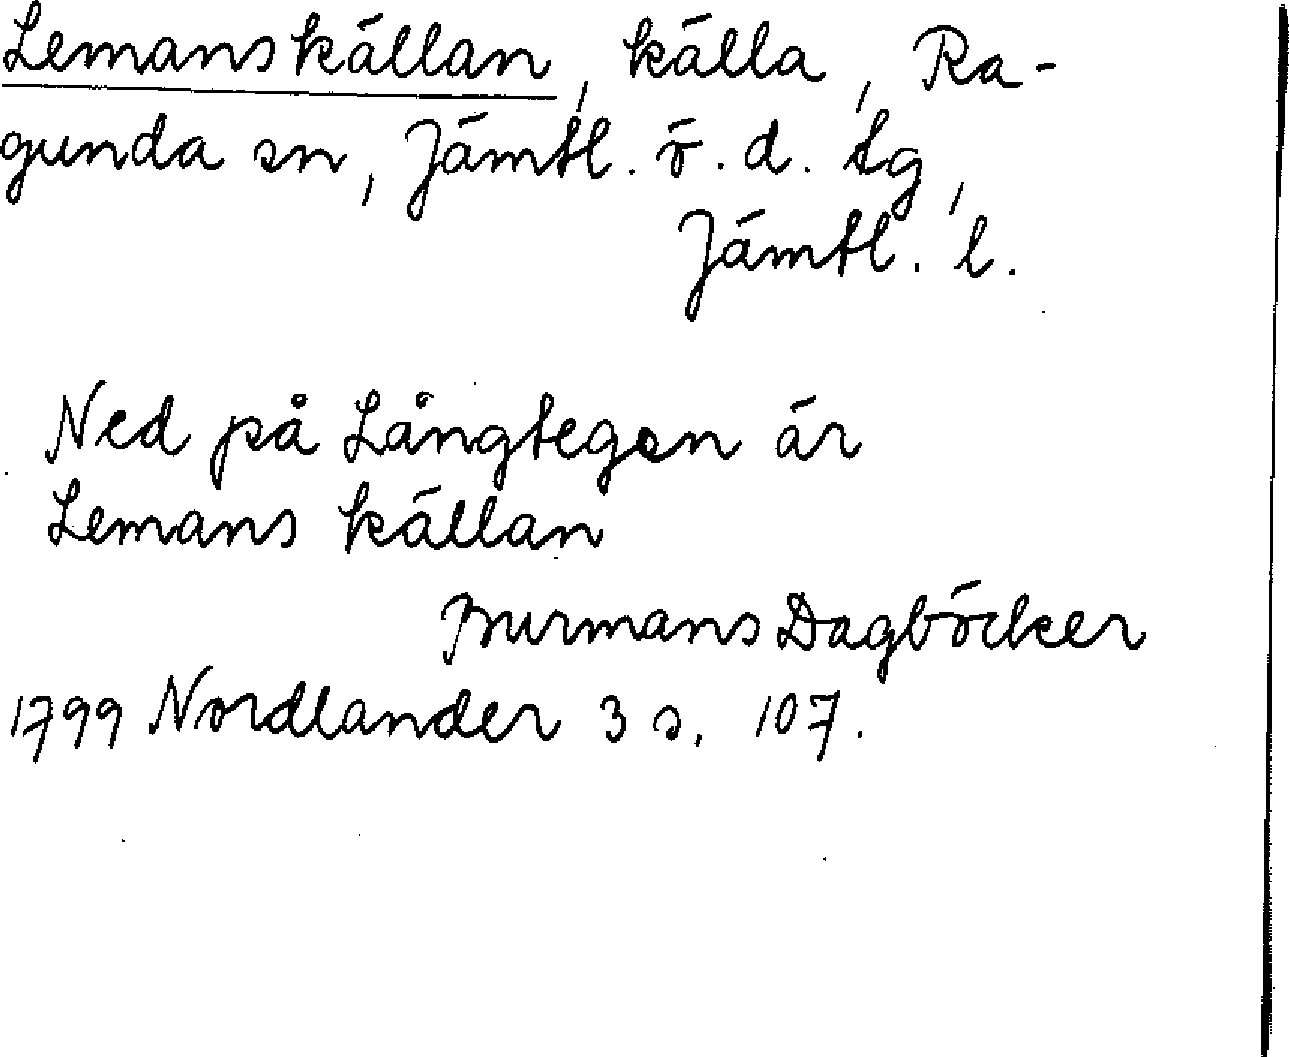 Lemanskällan, källa, Ra-
gunda sn, Jämtl. ö. d. tg,
Jämtl. l.
Ned på Långtegen är
Lemans källan
Burmans Dagböcker
1799 Nordlander 3 s. 107.